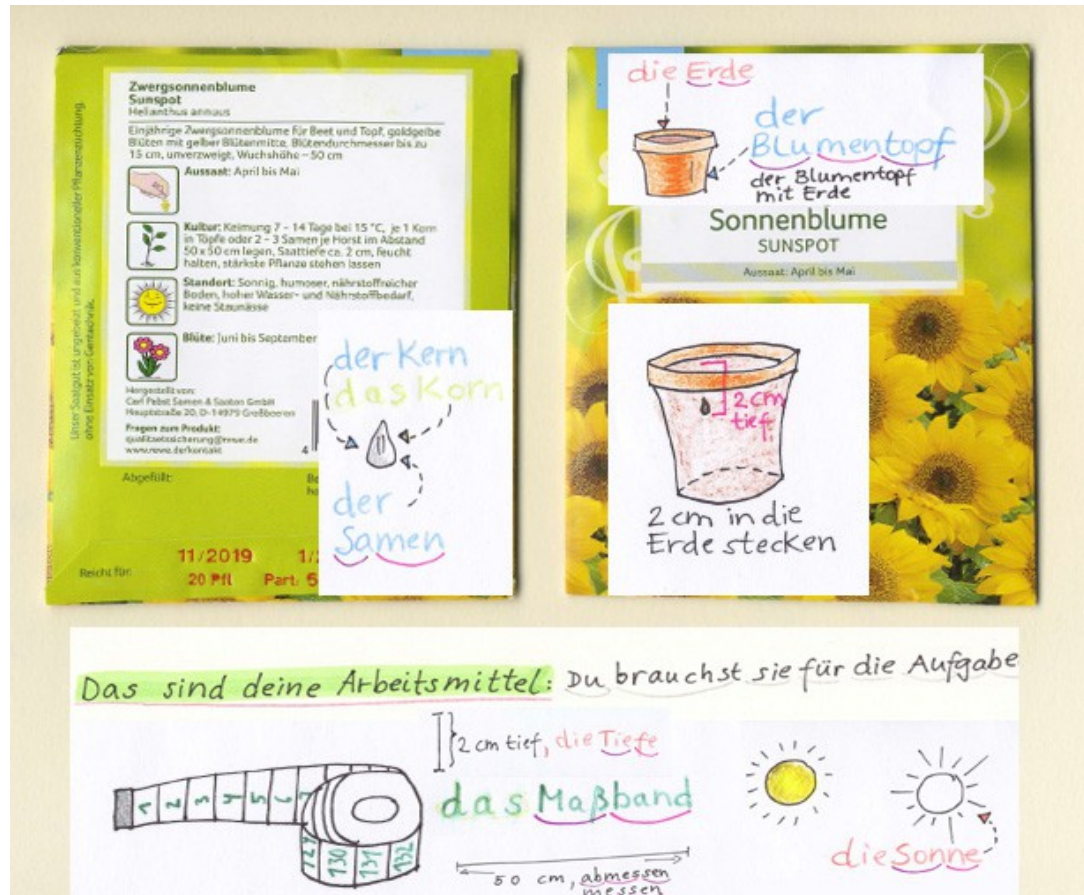 Unser Saatgut ist ungebeizt und aus konventioneller Pflanzenzüchtung,
ohne Einsatz von Gentechnik.
Zwergsonnenblume
Sunspot
Helianthus annuus
Einjährige Zwergsonnenblume für Beet und Topf, goldgelbe
Blüten mit gelber Blütenmitte, Blütendurchmesser bis zu
15 cm, unverzweigt, Wuchshöhe ~ 50 cm
Aussaat: April bis Mai
Kultur: Keimung 7 - 14 Tage bei 15 °C, je 1 Korn
in Töpfe oder 2 - 3 Samen je Horst im Abstand
50 x 50 cm legen, Saattiefe ca. 2 cm, feucht
halten, stärkste Pflanze stehen lassen
Standort: Sonnig, humoser, nährstoffreicher
Boden, hoher Wasser- und Nährstoffbedarf,
keine Staunässe
Blüte: Juni bis September
Hergestellt von:
Carl Pabst Samen & Saaten GmbH
Hauptstraße 20, D-14979 Großbeeren
Fragen zum Produkt:
qualitaetssicherung@rewe.de
www.rewe.de/kontakt
4
Abgefüllt:
11/2019 1/
Reicht für:
20 Pfl Part. 5
der Kern
das Korn
der
Samen
die Erde
der
Blumentopf
der Blumentopf
mit Erde
Sonnenblume
SUNSPOT
Aussaat: April bis Mai
2 cm
tief
2 cm in die
Erde stecken
Das sind deine Arbeitsmittel: Du brauchst sie für die Aufgabe
2 cm tief, die Tiefe
1 2 3 4 5 6 7
das Maßband
129 130 131 132
50 cm, abmessen
messen
die Sonne